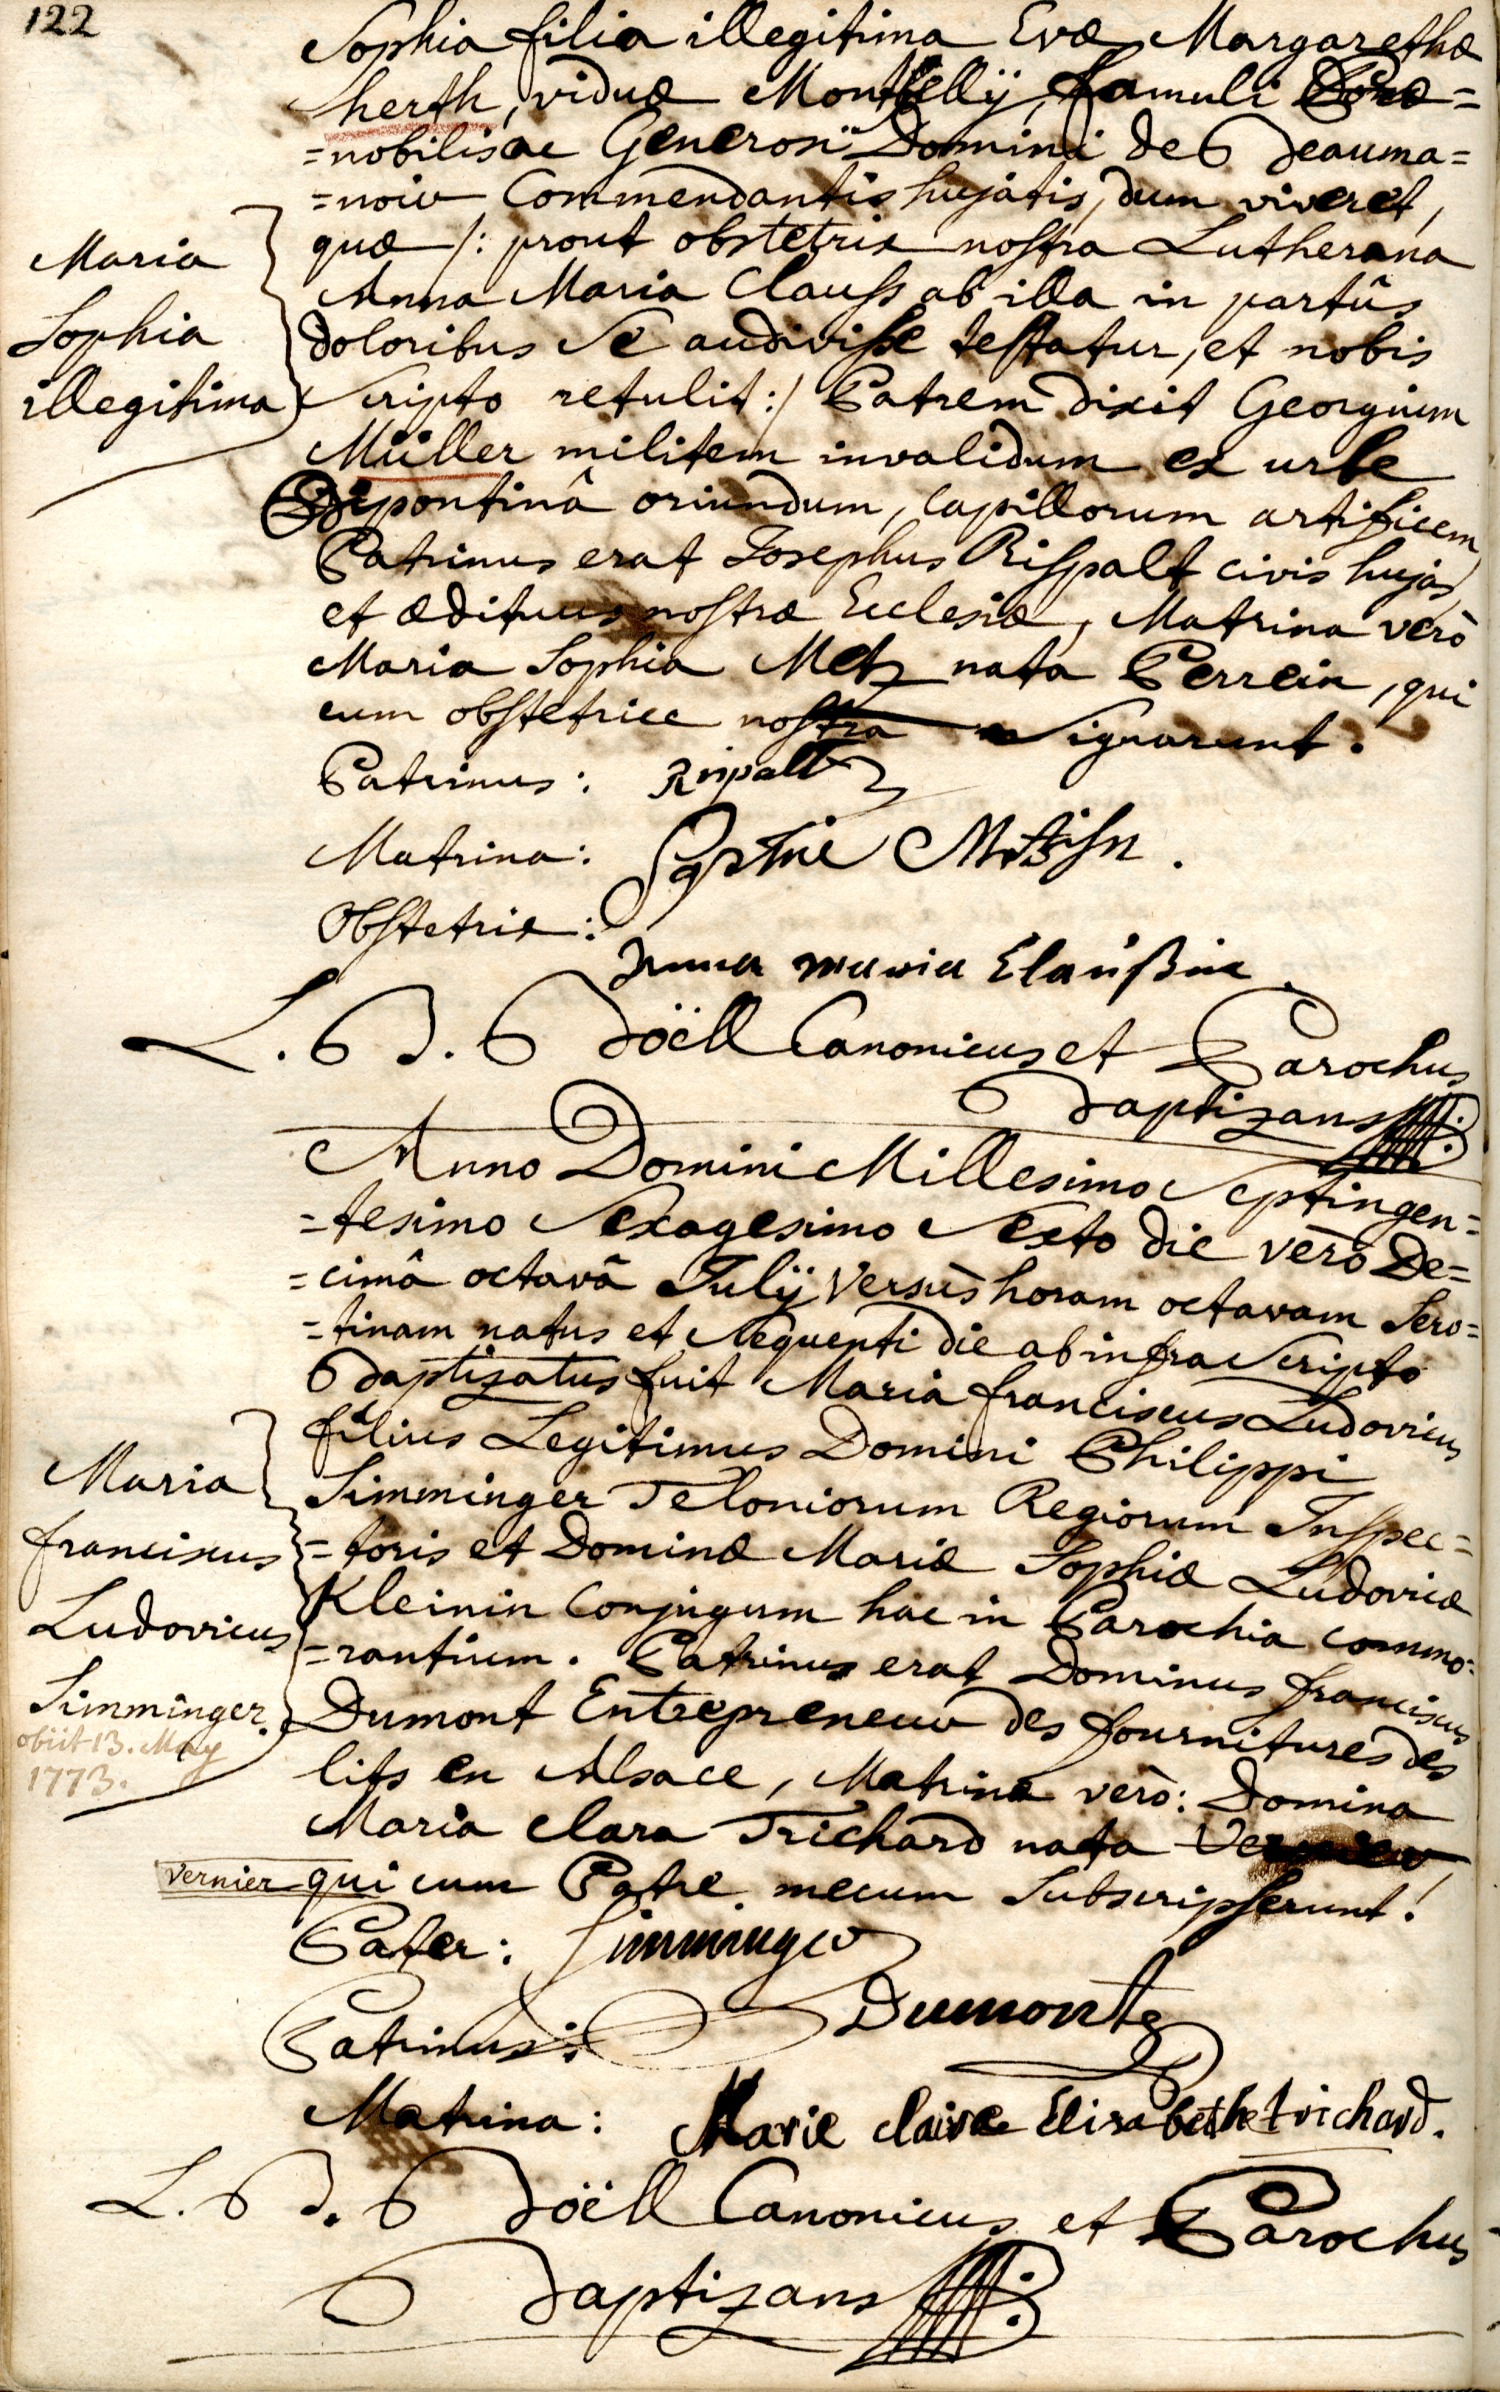 122
Sophia filia illegitima Evæ Margarethæ
herth, viduæ Montbellÿ, famuli
=nobilis ac Generosi Domini de Beauma=
=noir Commendantis hujatis, dum viveret,
quæ /: prout obstetrix nostra Lutherana
Anna Maria Clauss ab illa in partûs
doloribus se audivisse testatur, et nobis
scripto retulit :/ Patrem dixit Georgium
Müller militem invalidum ex urbe
Bipontinâ oriundum, capillorum artificem,
Patrinus erat Josephus Rispalt civis hujas
et ædituus nostræ Ecclesiæ, Matrina verò
Maria Sophia Metz nata Perrein, qui
cum obstetrice nostra signarunt.
Maria
Sophia
illegitima
Patrinus: Rispalt
Matrina: Sophie Metzisn.
Obstetrix:
Anna maria Claußin
L. B J. B Böell Canonicus et Parochus
Baptizans
Anno Domini Millesimo Septingen=
=tesimo Sexagesimo Sexto die verò De=
=cimâ octavâ Julÿ versùs horam octavam Sero=
=tinam natus et sequenti die ab infra scripto
Baptizatus fuit Maria franciscus Ludovicus
filius Legitimus Domini Philippi
Simminger Teloniorum Regiorum Inspec=
=toris et Dominæ Mariæ Sophiæ Ludovicæ
Kleinin conjugum hac in Parochia commo=
=rantium. Patrinus erat Dominus franciscus
Dumont Entrepreneur des fournitures des
lits en Alsace, Matrina verò: Domina
Maria Clara Trichard nata Vernier
vernier qui cum Patre mecum subscripserunt!
Maria
franciscus
Ludovicus
Simminger.
obiit 13. May
1773.
Pater: Simminger
Patrinus: Dumont
Matrina: Marie claire Elisabethe trichard.
L. B J. B Böell Canonicus et Parochus
Baptizans